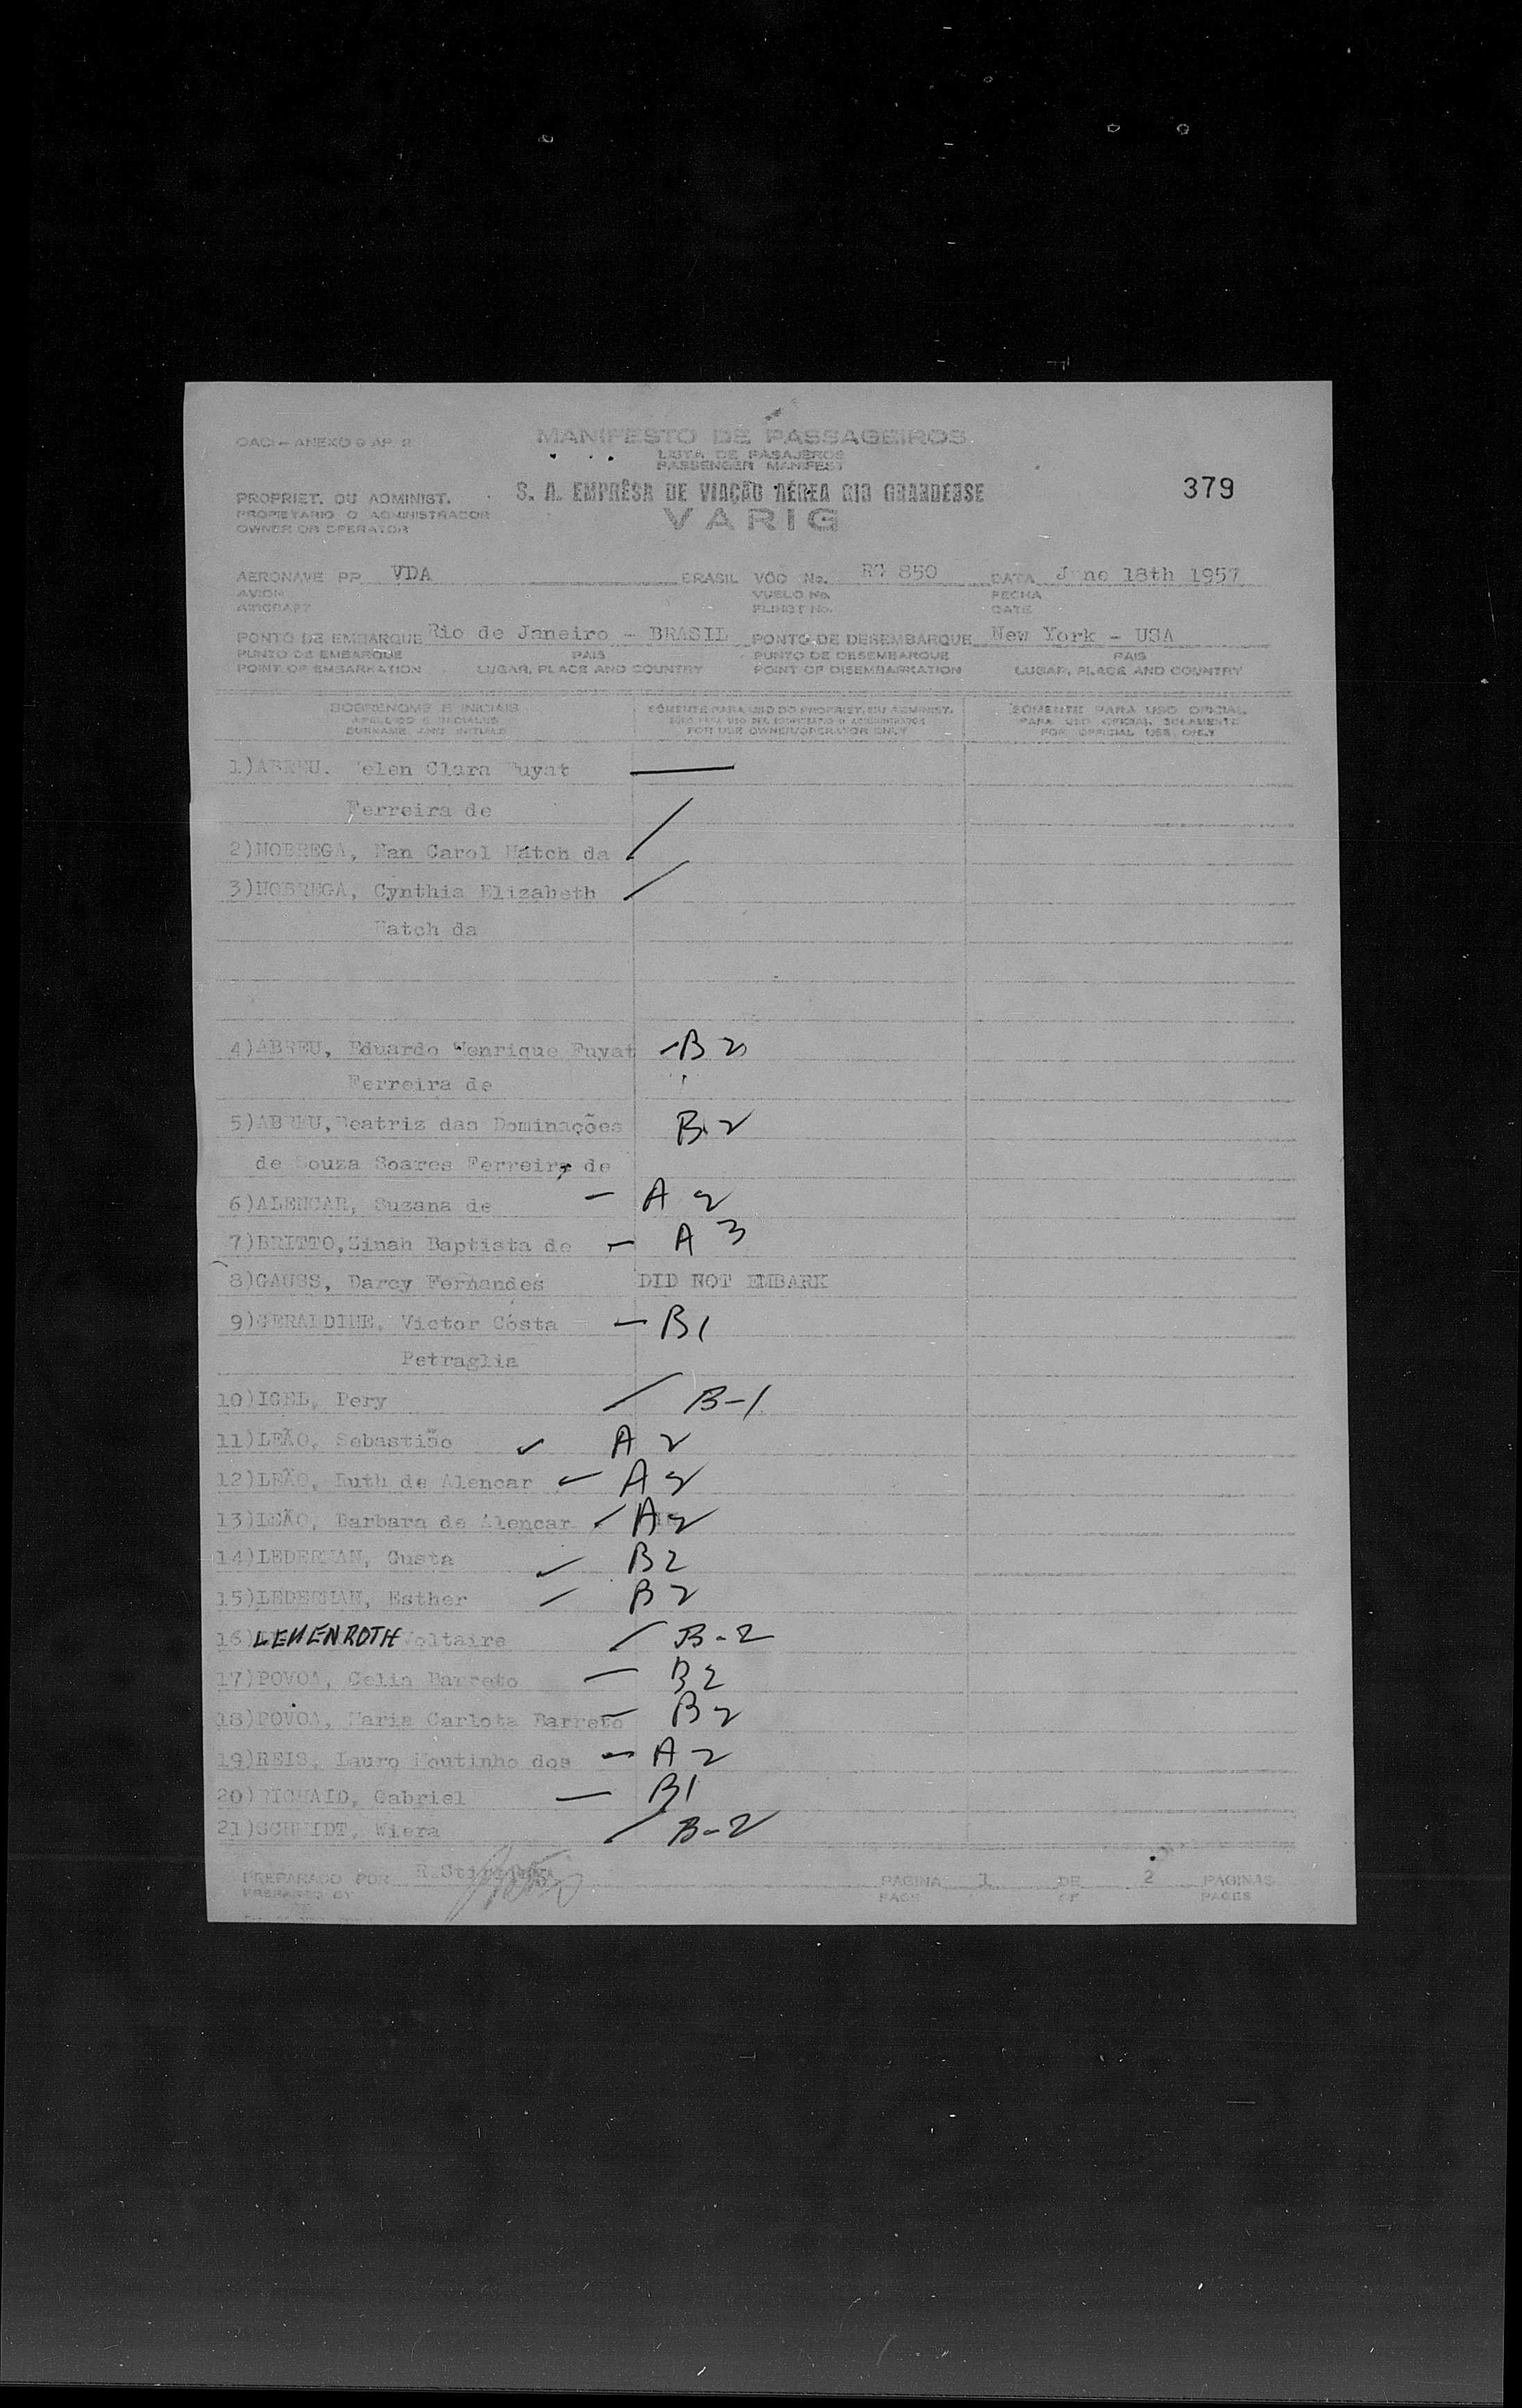 OACI - ANEXO 9 AP. 2
MANIFESTO DE PASSAGEIROS
LISTA DE PASAJEROS
PASSENGER MANIFEST
PROPRIET. OU ADMINIST.
PROPIETARIO O ADMINISTRADOR
OWNER OR OPERATOR
S. A. EMPRÊSA DE VIAÇÃO AÉREA RIO GRANDENSE
VARIG
379
AERONAVE PP VDA BRASIL VÔO No. RG 850 DATA June 18th 1957
AVION VUELO No. FECHA
AIRCRAFT FLIHGT No. DATE
PONTO DE EMBARQUE Rio de Janeiro - BRASIL PONTO DE DESEMBARQUE New York - USA
PUNTO DE EMBARQUE PAIS PUNTO DE DESEMBARQUE PAIS
POINT OF EMBARKATION LUGAR, PLACE AND COUNTRY POINT OF DISEMBARKATION LUGAR, PLACE AND COUNTRY
SOBRENOME E INICIAIS SOMENTE PARA USO DO PROPRIET. OU ADMINIST. SOMENTE PARA USO OFICIAL
APELLIDO E INICIALES SOLO PARA USO DEL PROPIETARIO O ADMINISTRADOR PARA USO OFICIAL SOLAMENTE
SURNAME AND INITIALS FOR USE OWNER/OPERATOR ONLY FOR OFFICIAL USE ONLY
1)ABREU. Helen Clara Fuyat
Ferreira de
2)NOBREGA, Nan Carol Hatch da
3)NOBREGA, Cynthia Elizabeth
Hatch da
4)ABREU, Eduardo Henrique Fuyat -B2
Ferreira de
5)ABREU,Beatriz das Dominações B.2
de Souza Soares Ferreira de
6)ALENCAR, Suzana de - A 2
7)BRITTO,Zinah Baptista de - A 3
8)GAUSS, Darcy Fernandes DID NOT EMBARK
9)GERALDINE, Victor Costa - B1
Petraglia
10)IGEL, Pery / B-1
11)LEÃO, Sebastião ✓ A 2
12)LEÃO, Ruth de Alencar ✓ A 2
13)LEÃO, Barbara de Alencar ✓ A2
14)LEDERMAN, Gusta ✓ B2
15)LEDERMAN, Esther - B2
16)LEUENROTH Voltaire / B-2
17)POVOA, Celia Barreto - B2
18)POVOA, Maria Carlota Barreto - B2
19)REIS, Lauro Moutinho dos - A 2
20) Gabriel - B1
21)SCHMIDT, Wiera / B-2
PREPARADO POR
PREPARED BY
PAGINA 1 DE 2 PAGINAS
PAGE OF PAGES